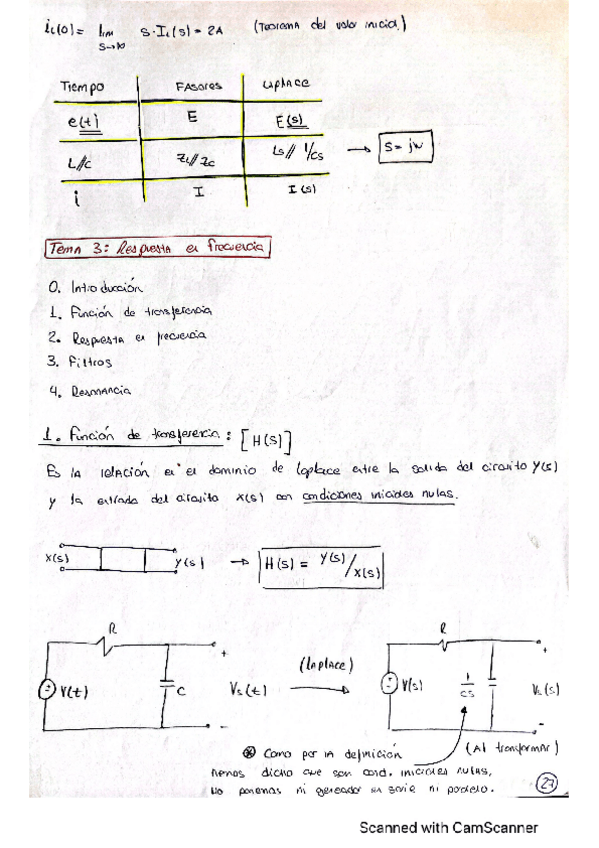 iL(0) = lim s→∞ S·IL(s) = 2A (Teorema del valor inicial)
Tiempo Fasores Laplace
e(t) E E(s)
L//C ZL//ZC Ls // 1/Cs → S = jw
i I I(s)
Tema 3: Respuesta en frecuencia
0. Introducción
1. Función de transferencia
2. Respuesta en frecuencia
3. Filtros
4. Resonancia
1. Función de transferencia: [H(s)]
Es la relación en el dominio de Laplace entre la salida del circuito Y(s)
y la entrada del circuito X(s) con condiciones iniciales nulas.
X(s) Y(s) → H(s) = Y(s)/X(s)
R R
+ (Laplace) +
V(t) C Vs(t) → V(s) 1/Cs Vs(s)
- -
⊛ Como por la definición (Al transformar)
hemos dicho que son cond. iniciales nulas,
no ponemos ni generador en serie ni paralelo.
27
Scanned with CamScanner